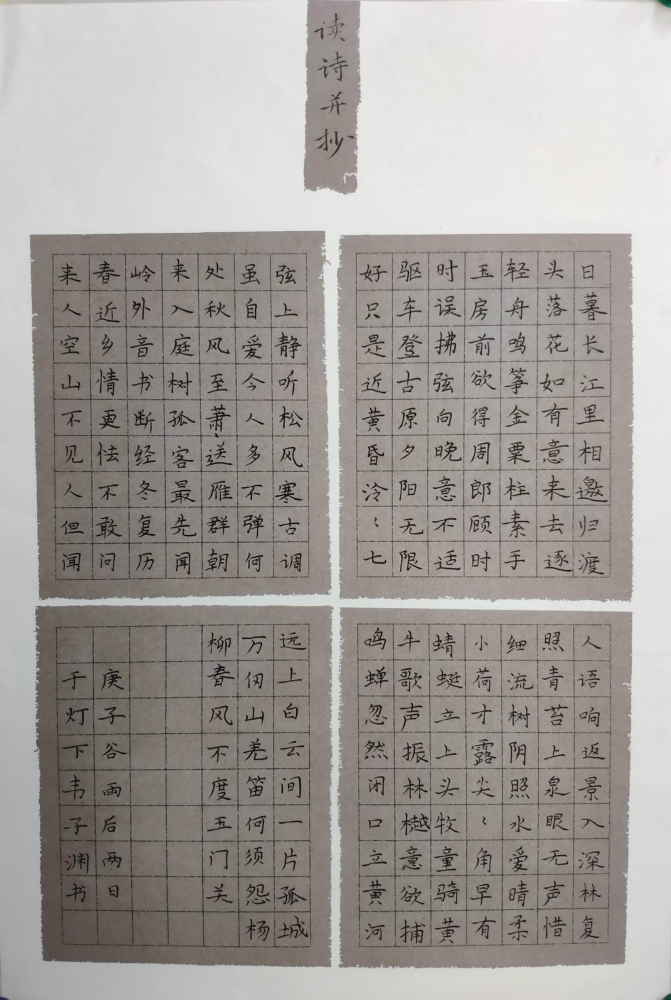 读诗并抄
日暮长江里相邀归渡
头落花如有意来去逐
轻舟鸣筝金粟柱素手
玉房前欲得周郎顾时
时误拂弦向晚意不适
驱车登古原夕阳无限
好只是近黄昏泠〻七
弦上静听松风寒古调
虽自爱今人多不弹何
处秋风至萧〻送雁群朝
来入庭树孤客最先闻
岭外音书断经冬复历
春近乡情更怯不敢问
来人空山不见人但闻
人语响返景入深林复
照青苔上泉眼无声惜
细流树阴照水爱晴柔
小荷才露尖〻角早有
蜻蜓立上头牧童骑黄
牛歌声振林樾意欲捕
鸣蝉忽然闭口立黄河
远上白云间一片孤城
万仞山羌笛何须怨杨
柳春风不度玉门关
庚子谷雨后两日
于灯下韦子渊书